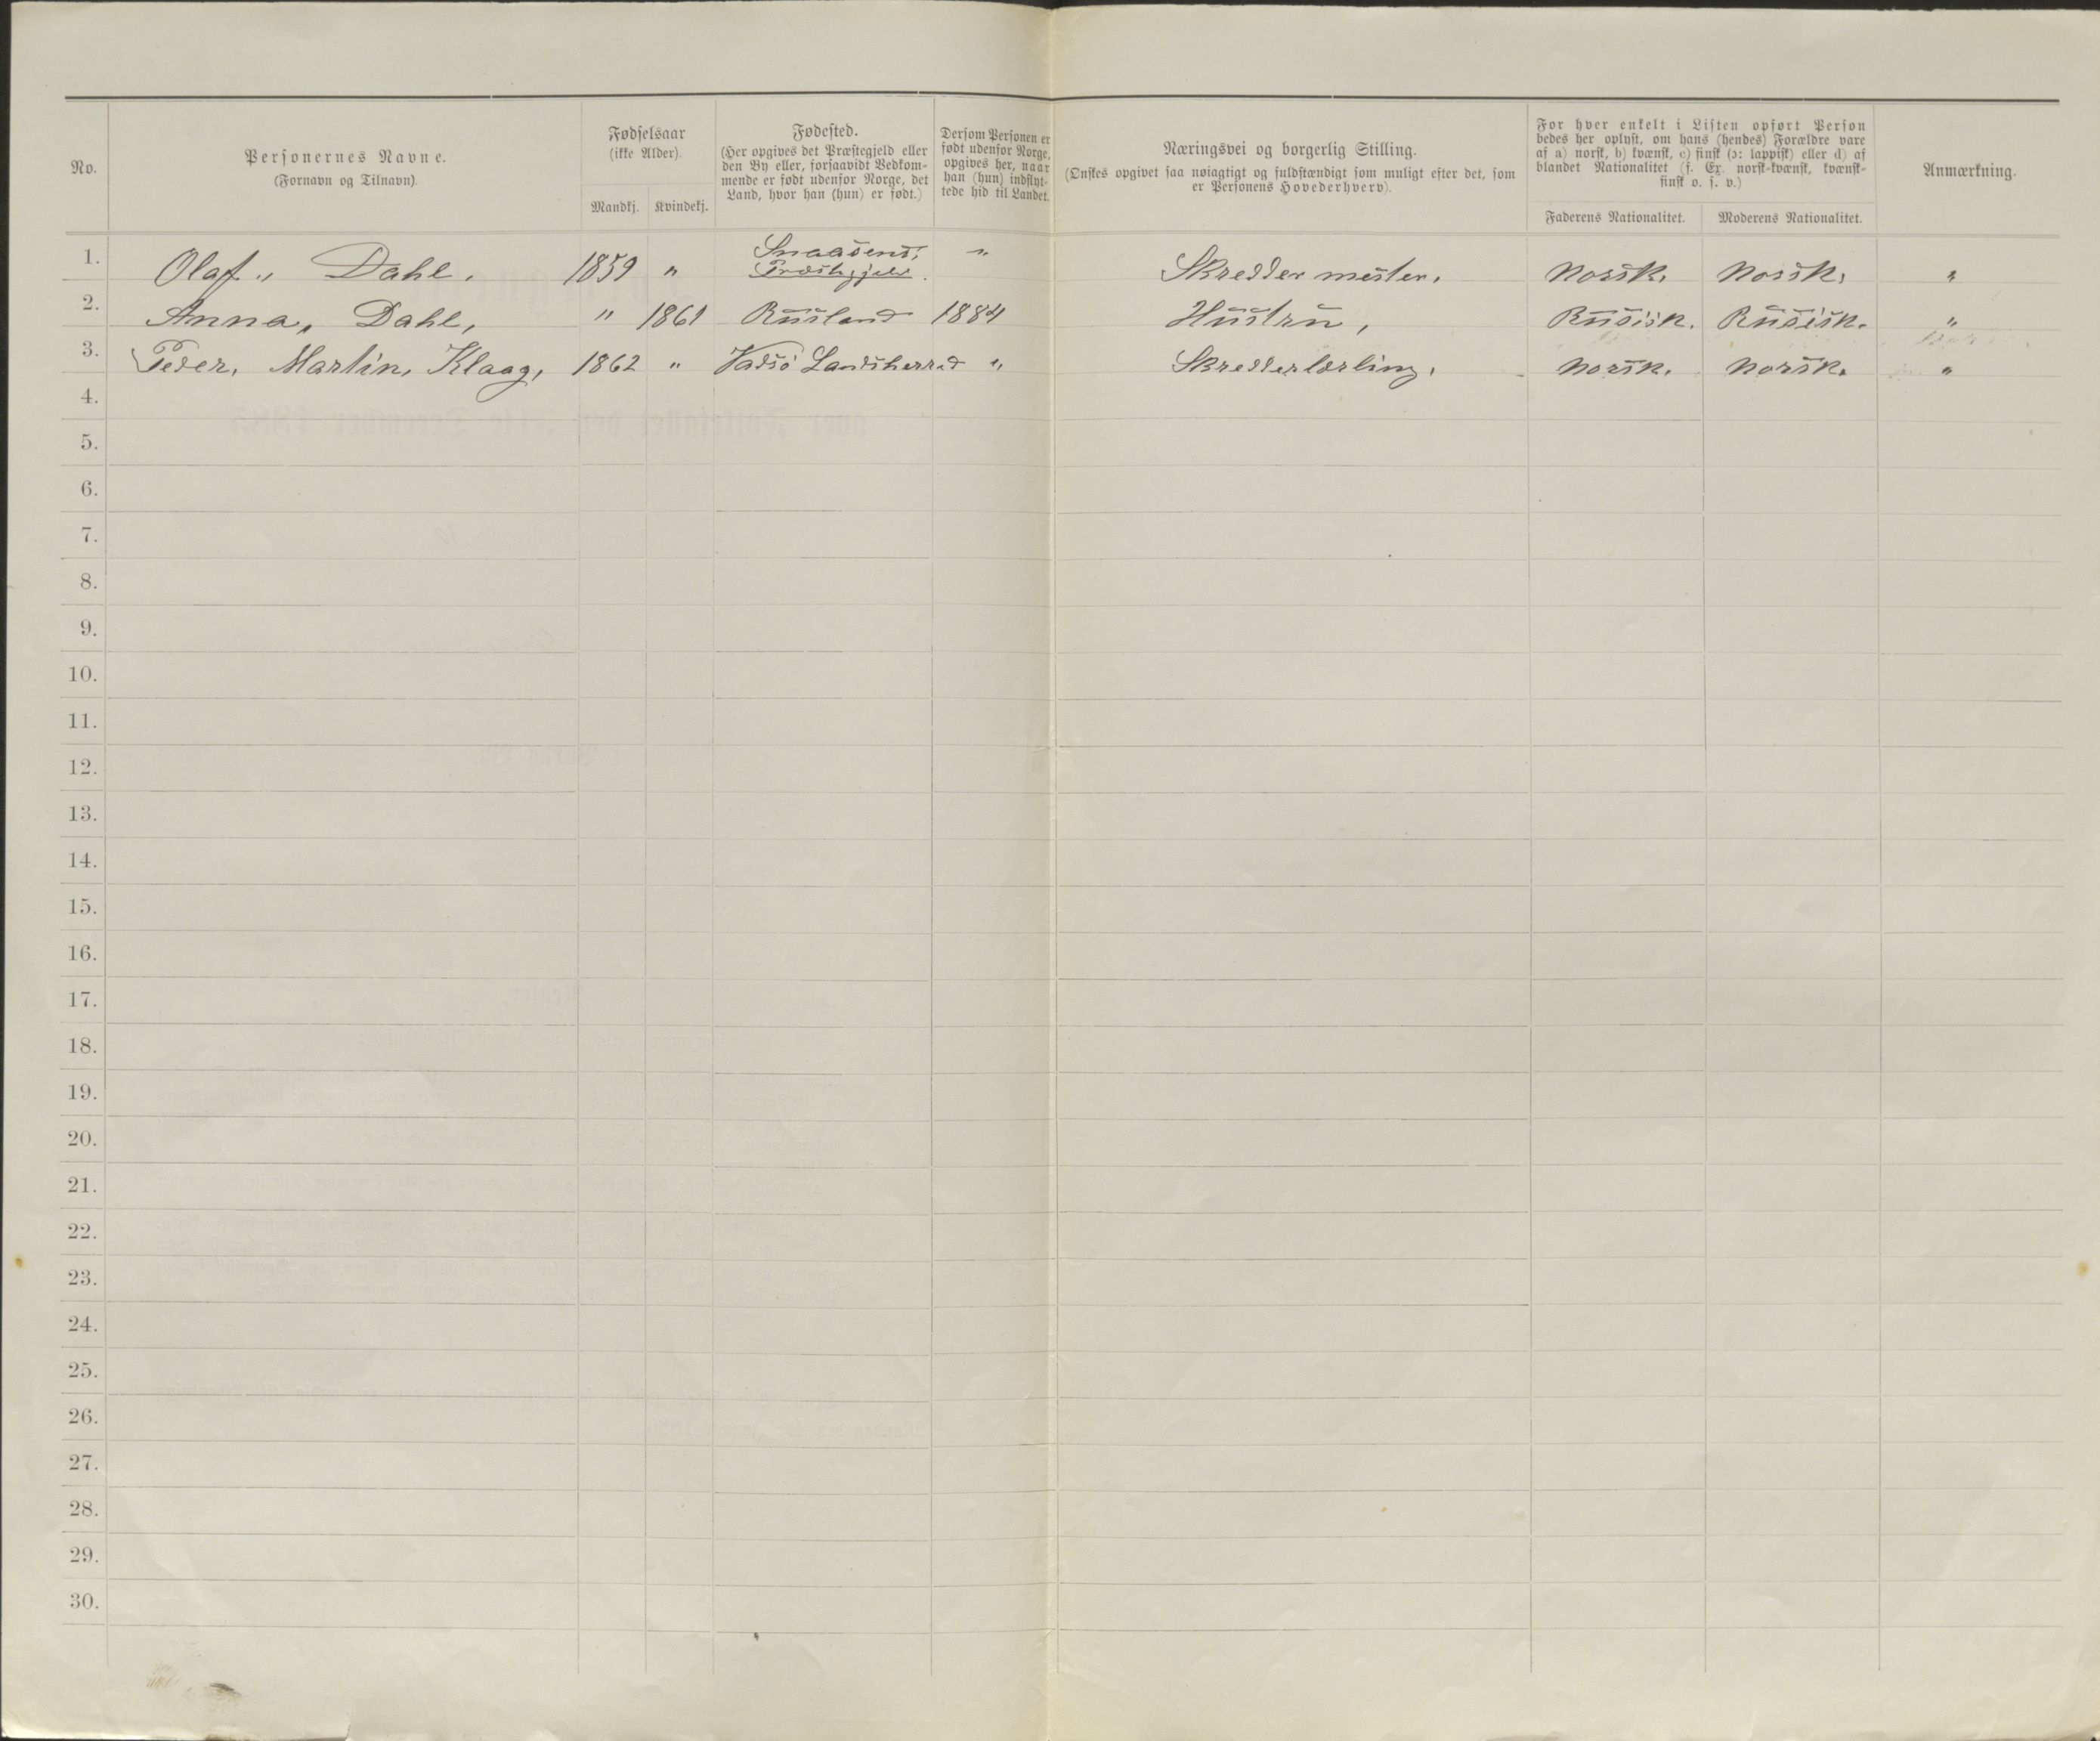 No.
Personernes Navne.
(Fornavn og Tilnavn).
Fødselsaar
(ikke Alder).
Mandkj. Kvindekj.
Fødested.
(Her opgives det Præstegjeld eller
den By eller, forsaavidt Vedkom-
mende er født udenfor Norge, det
Land, hvor han (hun) er født.)
Dersom Personen er
født udenfor Norge,
opgives her, naar
han (hun) indflyt-
tede hid til Landet.
Næringsvei og borgerlig Stilling.
(Ønskes opgivet saa nøiagtigt og fuldstændigt som muligt efter det, som
er Personens Hovederhverv).
For hver enkelt i Listen opført Person
bedes her oplyst, om hans (hendes) Forældre vare
af a) norsk, b) kvænsk, c) finsk (ɔ: lappisk) eller d) af
blandet Nationalitet (f. Ex. norsk-kvænsk, kvænsk-
finsk o. s. v.)
Faderens Nationalitet. Moderens Nationalitet.
Anmærkning.
1. Olaf „ Dahl. 1859 „ Snaasens Præstegjeld. „ Skreddermester. Norsk. Norsk. „
2. Anna, Dahl, „ 1861 Rusland 1884 Hustru, Rusisk. Rusisk. „
3. Peder, Martin, Klaag, 1862 „ Vadsö Landsherred „ Skredderlærling. Norsk. Norsk. „
4.
5.
6.
7.
8.
9.
10.
11.
12.
13.
14.
15.
16.
17.
18.
19.
20.
21.
22.
23.
24.
25.
26.
27.
28.
29.
30.